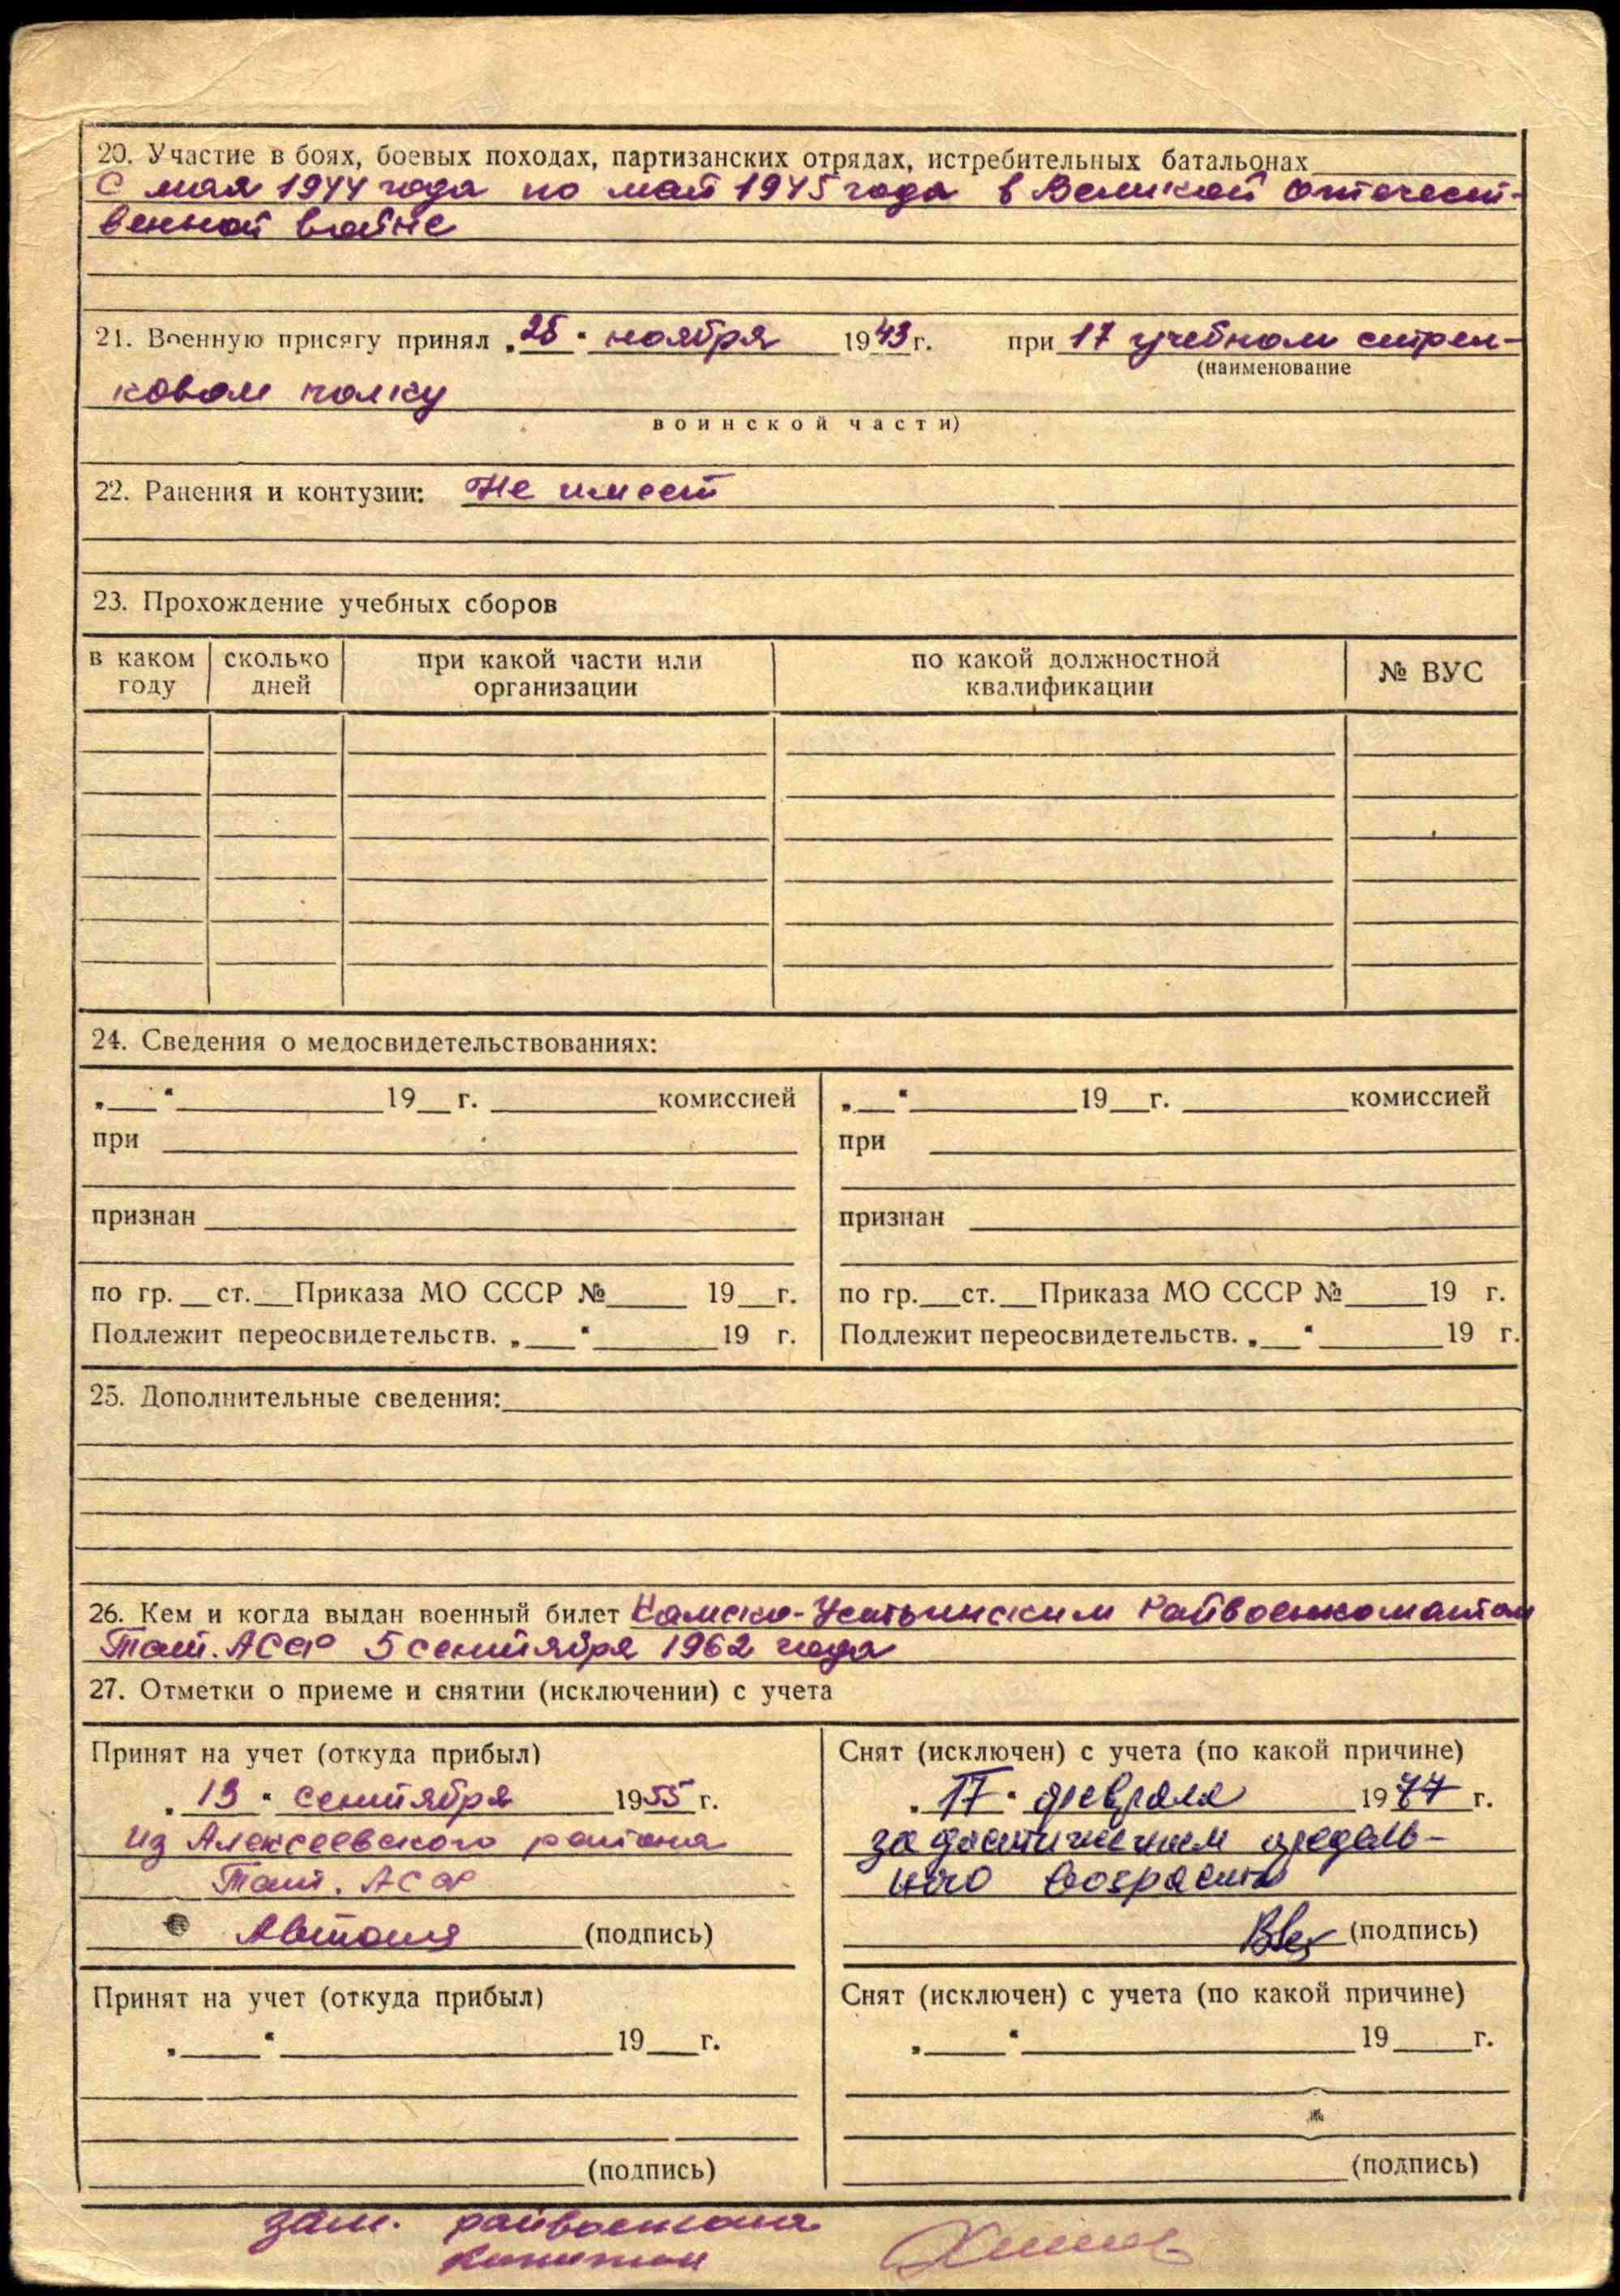 20. Участие в боях, боевых походах, партизанских отрядах, истребительных батальонах
С мая 1944 года по май 1945 года в Великой отечест-
венной войне
21. Военную присягу принял „25“ ноября 1943 г. при 17 учебном стрел-
(наименование
ковом полку
воинской части)
22. Ранения и контузии: Не имеет
23. Прохождение учебных сборов
в каком году сколько дней при какой части или организации по какой должностной квалификации № ВУС
24. Сведения о медосвидетельствованиях:
„__“ 19__г. комиссией „__“ 19__г. комиссией
при при
признан признан
по гр.__ст.__Приказа МО СССР №____ 19__г. по гр.__ст.__Приказа МО СССР №____19 г.
Подлежит переосвидетельств. „__“____19 г. Подлежит переосвидетельств. „__“____19 г.
25. Дополнительные сведения:
26. Кем и когда выдан военный билет Камско-Устьинским Райвоенкоматом
Тат. АССР 5 сентября 1962 года
27. Отметки о приеме и снятии (исключении) с учета
Принят на учет (откуда прибыл)
„13“ сентября 1955 г.
из Алексеевского района
Тат. АССР
(подпись)
Снят (исключен) с учета (по какой причине)
„17“ февраля 1977 г.
за достижением предель-
ного возраста
(подпись)
Принят на учет (откуда прибыл)
„__“ 19__г.
(подпись)
Снят (исключен) с учета (по какой причине)
„__“ 19__г.
(подпись)
зам. райвоенкома
капитан